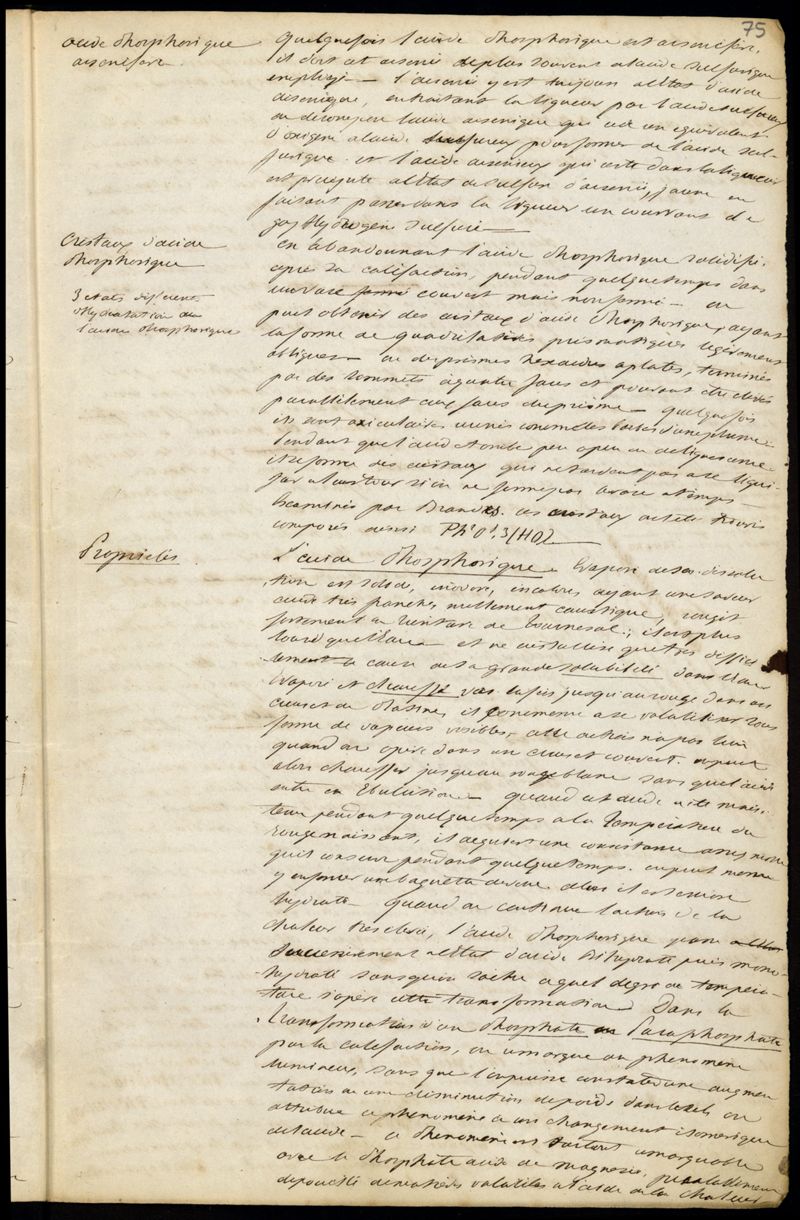 75
acide Phosphorique
arsenifère
quelquefois l'acide Phosphorique est arsenifère,
il doit cet arsenic le plus souvent a l'acide sulfurique
employé — l'arsenic y est toujours a l'Etat d'acide
arsenique, en traitant la liqueur par l'acide sulfureux
on decompose l'acide arsenique qui cède un equivalent
d'oxigene a l'acide sulfureux pour former de l'acide sul-
furique. et l'acide arsenieux qui reste dans la liqueur
est précipité a l'Etat de sulfure d'arsenic, jaune en
faisant passer dans la liqueur un courrant de
gaz Hydrogène sulfuré —
Cristaux d'acide
Phosphorique
3 etats differents
d'Hydratation de
l'acide Phosphorique
en abandonnant l'acide Phosphorique solidifié
après sa calefaction, pendant quelque temps dans
un vase couvert mais non fermé — on
peut obtenir des cristaux d'acide Phosphorique, ayant
la forme de quadrilatères prismatiques legerement
obliques — ou de prismes hexaedres aplatis, terminés
par des sommets à quatre faces et pouvant être clivés
parallèlement aux faces du prisme — quelquefois
ils sont aciculaires unis comme les barbes d'une plume —
pendant que l'acide tombe peu a peu en deliquescence
il se forme des cristaux qui ne tardent pas a se liqui-
fier a leur tour si on ne ferme pas le vase a temps —
Examinés par Brandes. ces cristaux ont été trouvés
composés ainsi Ph²O⁵, 3(HO) —
Propriétés
L'acide Phosphorique. Evaporé de sa dissolu
tion est solide, inodore, incolore ayant une saveur
acide très franche, nullement caustique, rougit
fortement la teinture de tournesol; il est plus
lourd que l'Eau — et ne cristallise que très diffici
lement a cause de sa grande solubilité dans l'Eau
Evaporé et chauffé jusqu'au rouge dans un
creuset de Platine, il commence a se volatiliser sous
forme de vapeurs visibles, cette action n'a pas lieu
quand on opère dans un creuset couvert. on peut
alors chauffer jusqu'au rouge blanc sans que l'acide
entre en Ebulition — quand cet acide a été main-
tenu pendant quelque temps a la température du
rouge naissant, il acquiert une consistance assez molle
qu'il conserve pendant quelque temps. on peut même
y enfoncer une baguette de verre alors il est
hydraté — quand on continue l'action de la
chaleur très élevée, l'acide Phosphorique passe
successivement a l'Etat d'acide bihydraté puis mono-
hydraté sans qu'on sache a quel degré de tempera-
ture s'opère cette transformation Dans la
transformation d'un Phosphate en Paraphosphate
par la calefaction, on remarque un phénomène
lumineux, sans que l'on puisse constater une augmen
tation ou une diminution de poids dans le sel on
attribue ce phénomène a un changement isomerique
de l'acide — ce Phénomène est surtout remarquable
avec le Phosphate acide de magnesie, préalablement
dépouillé de matières volatiles a l'aide de la chaleur